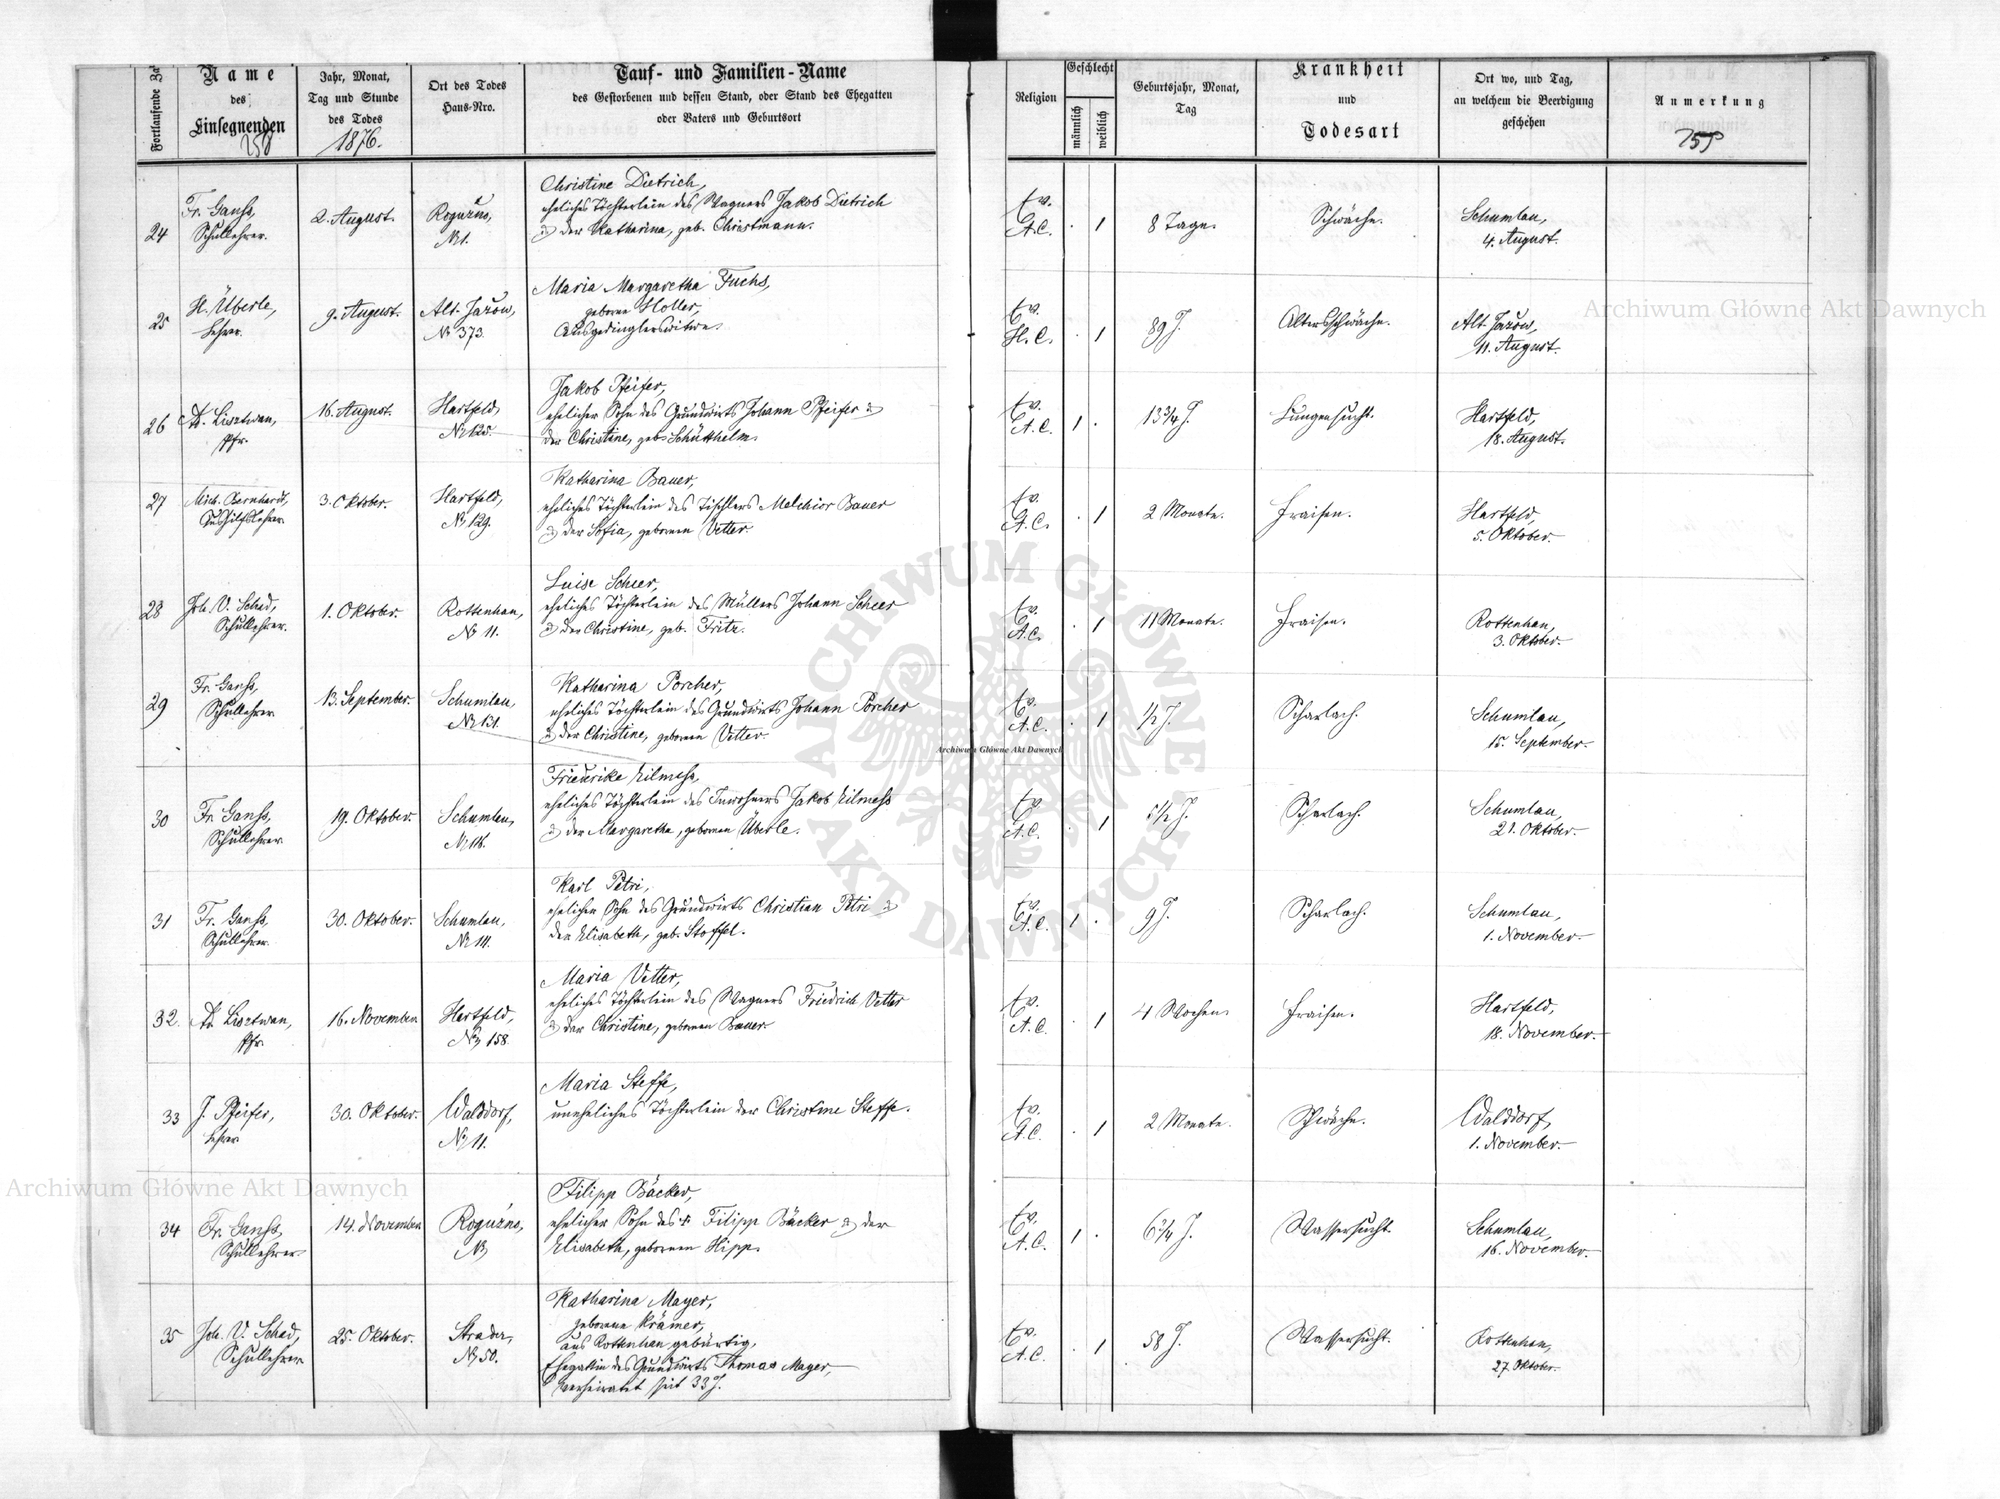 Fortlaufende Za
Name
des
Einsegnenden
258
Jahr, Monat,
Tag und Stunde
des Todes
1876.
Ort des Todes
Haus-Nro.
Tauf- und Familien-Name
des Gestorbenen und dessen Stand, oder Stand des Ehegatten
oder Vaters und Geburtsort
Religion
Geschlecht
männlich
weiblich
Geburtsjahr, Monat,
Tag
Krankheit
und
Todesart
Ort wo, und Tag,
an welchem die Beerdigung
geschehen
Anmerkung
24
Fr. Ganss,
Schullehrer.
2. August.
Roguźno,
No 1.
Christine Dietrich,
eheliches Töchterlein des Wagners Jakob Dietrich
& der Katharina, geb. Christmann.
Ev.
A.C.
. 1
8 Tage.
Schwäche.
Schumlau,
4. August.
25
H. Überle,
Lehrer.
9. August.
Alt-Jażow,
No 373.
Maria Margaretha Fuchs,
geborene Holler,
Ausgedinglerswitwe.
Ev.
H.C.
. 1
89 J.
Altersschwäche.
Alt-Jażow,
11. August.
26
A. Lisztwan,
Pfr.
16. August.
Hartfeld,
No 125.
Jakob Pfeifer,
ehelicher Sohn des Grundwirts Johann Pfeifer &
der Christine, geb. Schütthelm.
Ev.
A.C.
1 .
13 3/4 J.
Lungensucht.
Hartfeld,
18. August.
27
Mich. Bernhardt,
Aushilfslehrer.
3. Oktober.
Hartfeld,
No 129.
Katharina Bauer,
eheliches Töchterlein des Tischlers Melchior Bauer
& der Sofia, geborenen Vetter.
Ev.
A.C.
. 1
2 Monate.
Fraisen.
Hartfeld,
5. Oktober.
28
Joh. V. Schad,
Schullehrer.
1. Oktober.
Rottenhan,
No 11.
Luise Scheer,
eheliches Töchterlein des Müllers Johann Scheer
& der Christine, geb. Fritz.
Ev.
A.C.
. 1
11 Monate.
Fraisen.
Rottenhan,
3. Oktober.
29
Fr. Ganss,
Schullehrer.
13. September.
Schumlau,
Katharina Porcher,
eheliches Töchterlein des Grundwirts Johann Porcher
& der Christine, geborenen Vetter.
Ev.
A.C.
. 1
1/2 J.
Scharlach.
Schumlau,
15. September.
30
Fr. Ganss,
Schullehrer.
19. Oktober.
Schumlau,
Friederike Kilmess,
eheliches Töchterlein des Inwohners Jakob Kilmess
& der Margaretha, geborenen Überle.
Ev.
A.C.
. 1
5 1/2 J.
Scharlach.
Schumlau,
21. Oktober.
31
Fr. Ganss,
Schullehrer.
30. Oktober.
Schumlau,
Karl Petri,
ehelicher Sohn des Grundwirts Christian Petri &
der Elisabeth, geb. Stoffel.
Ev.
A.C.
1 .
9 J.
Scharlach.
Schumlau,
1. November.
32.
A. Lisztwan,
Pfr.
16. November.
Hartfeld,
No 158.
Maria Vetter,
eheliches Töchterlein des Wagners Friedrich Vetter
& der Christine, geborenen Bauer.
Ev.
A.C.
. 1
4 Wochen.
Fraisen.
Hartfeld,
18. November.
33
J. Pfeifer,
Lehrer
30. Oktober.
Walddorf,
No 11.
Maria Steffe,
uneheliches Töchterlein der Christine Steffe.
Ev.
A.C.
. 1
2 Monate.
Schwäche.
Walddorf,
1. November.
34
Fr. Ganss,
Schullehrer.
14. November.
Roguźno,
No
Filipp Bäcker,
ehelicher Sohn des † Filipp Bäcker & der
Elisabeth, geborenen Hipp.
Ev.
A.C.
1 .
6 3/4 J.
Wassersucht.
Schumlau,
16. November.
35
Joh. V. Schad,
Schullehrer
25. Oktober.
Strader,
No 50.
Katharina Mayer,
geborene Krämer,
aus Rottenhan gebürtig,
Ehegattin des Grundwirts Thomas Mayer,
verheiratet seit 33 J.
Ev.
A.C.
. 1
58 J.
Wassersucht.
Rottenhan,
27. Oktober.
Archiwum Główne Akt Dawnych
Archiwum Główne Akt Dawnych
Archiwum Główne Akt Dawnych
ARCHIWUM GŁÓWNE
AKT DAWNYCH